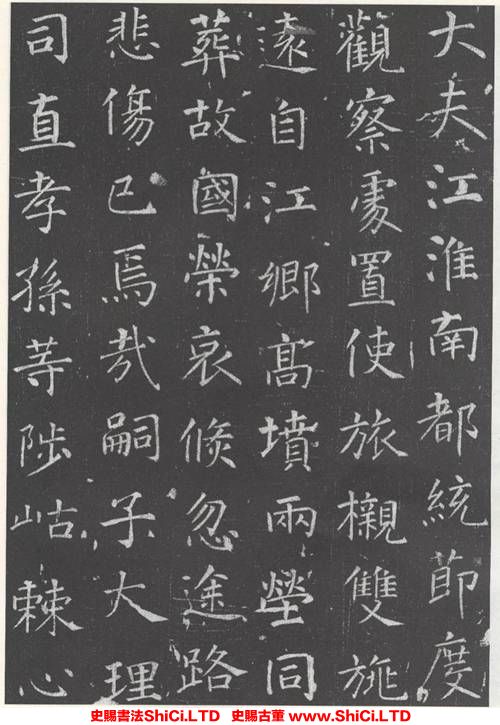 大夫江淮南都統節度
觀察處置使旅櫬雙旐
遠自江鄉高墳兩塋同
葬故國榮哀倏忽途路
悲傷已焉哉嗣子大理
司直孝孫等陟岵棘心
史賜書法ShiCi.LTD 史賜古董 www.ShiCi.LTD